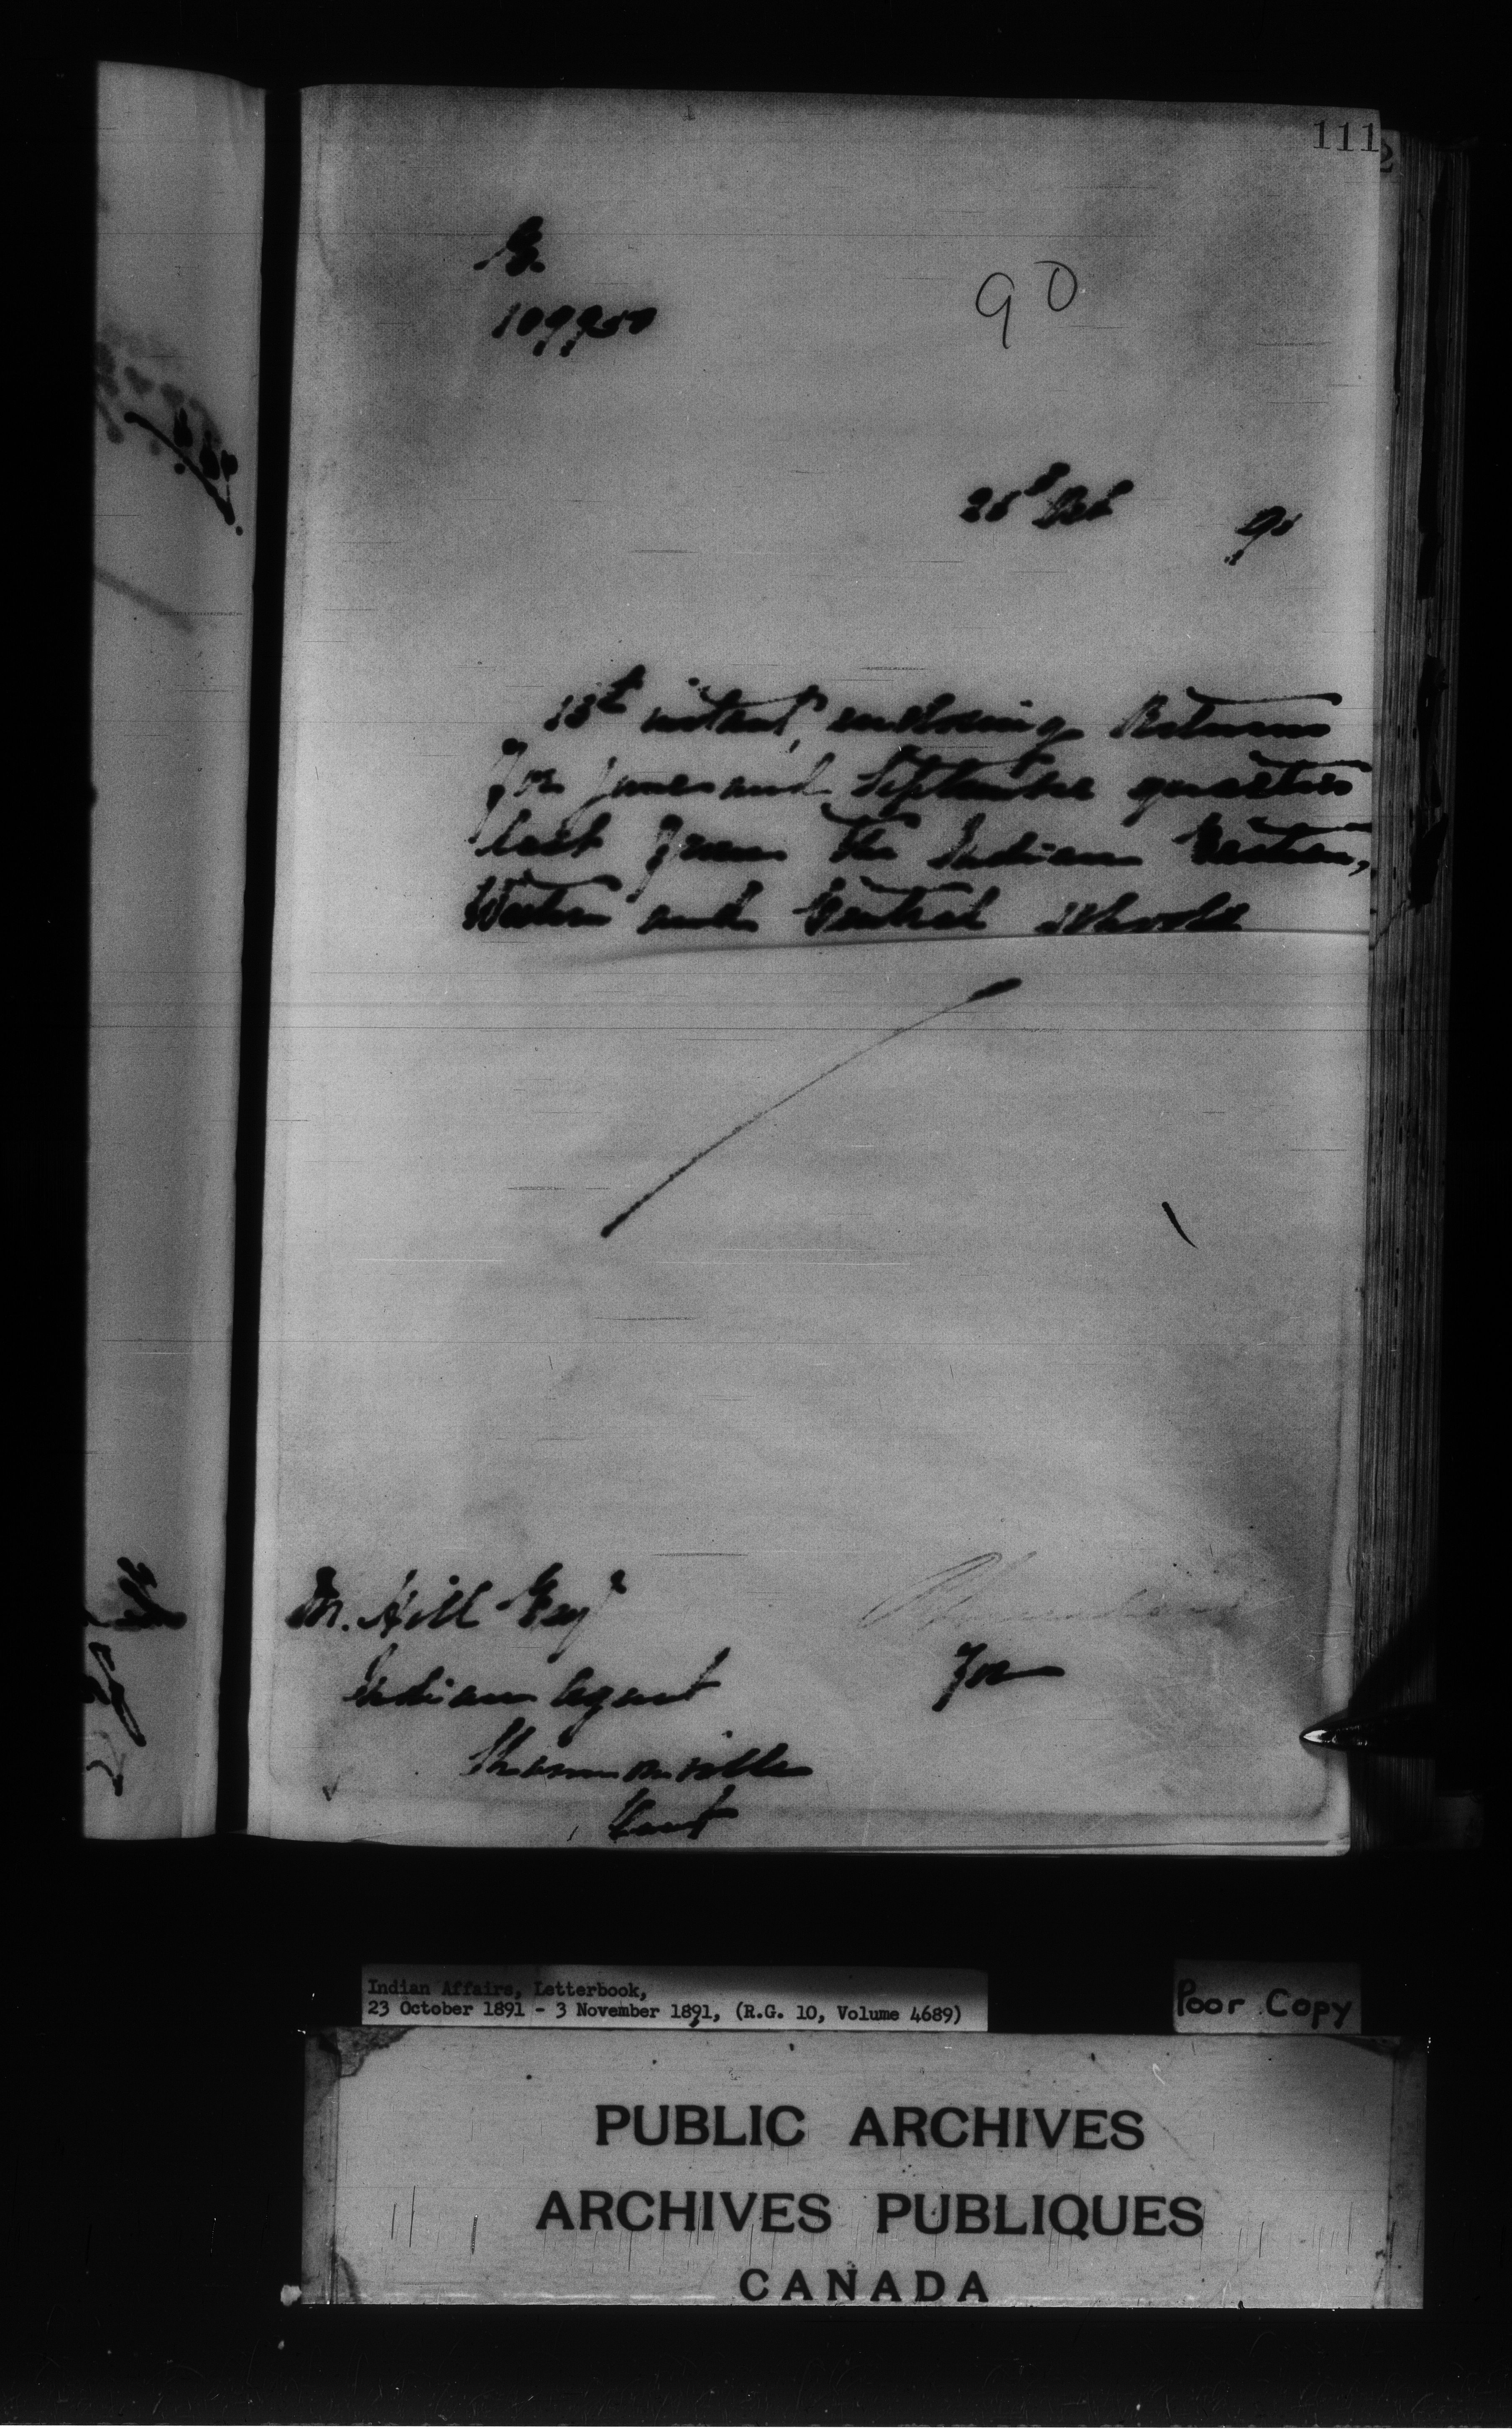 111
90
Oct 91
13th instant, enclosing Returns
for June and September quarters
last from the Indian Eastern,
Western and Central Schools
M. Hill Esqr
Indian Agent
Shannonville
Ont
For
Indian Affairs, Letterbook,
23 October 1891 - 3 November 1891, (R.G. 10, Volume 4689)
Poor Copy
PUBLIC ARCHIVES
ARCHIVES PUBLIQUES
CANADA